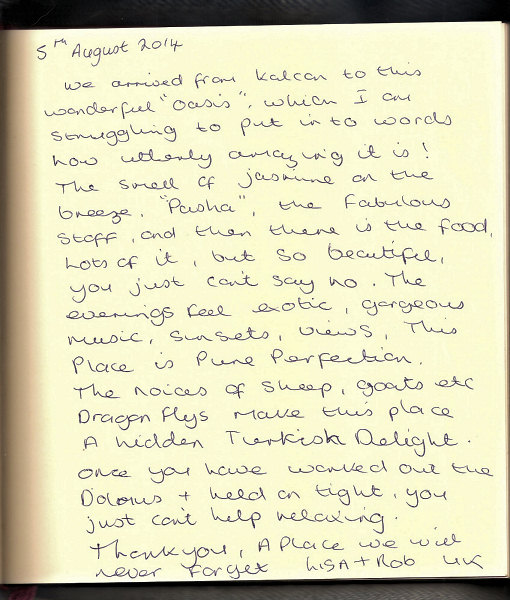 5th August 2014
We arrived from Kalcan to this
wonderful "Oasis", which I am
struggling to put in to words
how utterly amazing it is!
The smell of jasmine on the
breeze, "Pasha", the fabulous
staff, and then there is the food,
Lots of it, but so beautiful,
you just can't say no. The
evenings feel exotic, gorgeous
music, sunsets, views, This
Place is Pure Perfection.
The noices of sheep, goats etc
Dragon flys make this place
A hidden Turkish Delight.
once you have worked out the
+ held on tight, you
just can't help relaxing.
Thankyou, A Place we will
never forget LISA + Rob UK